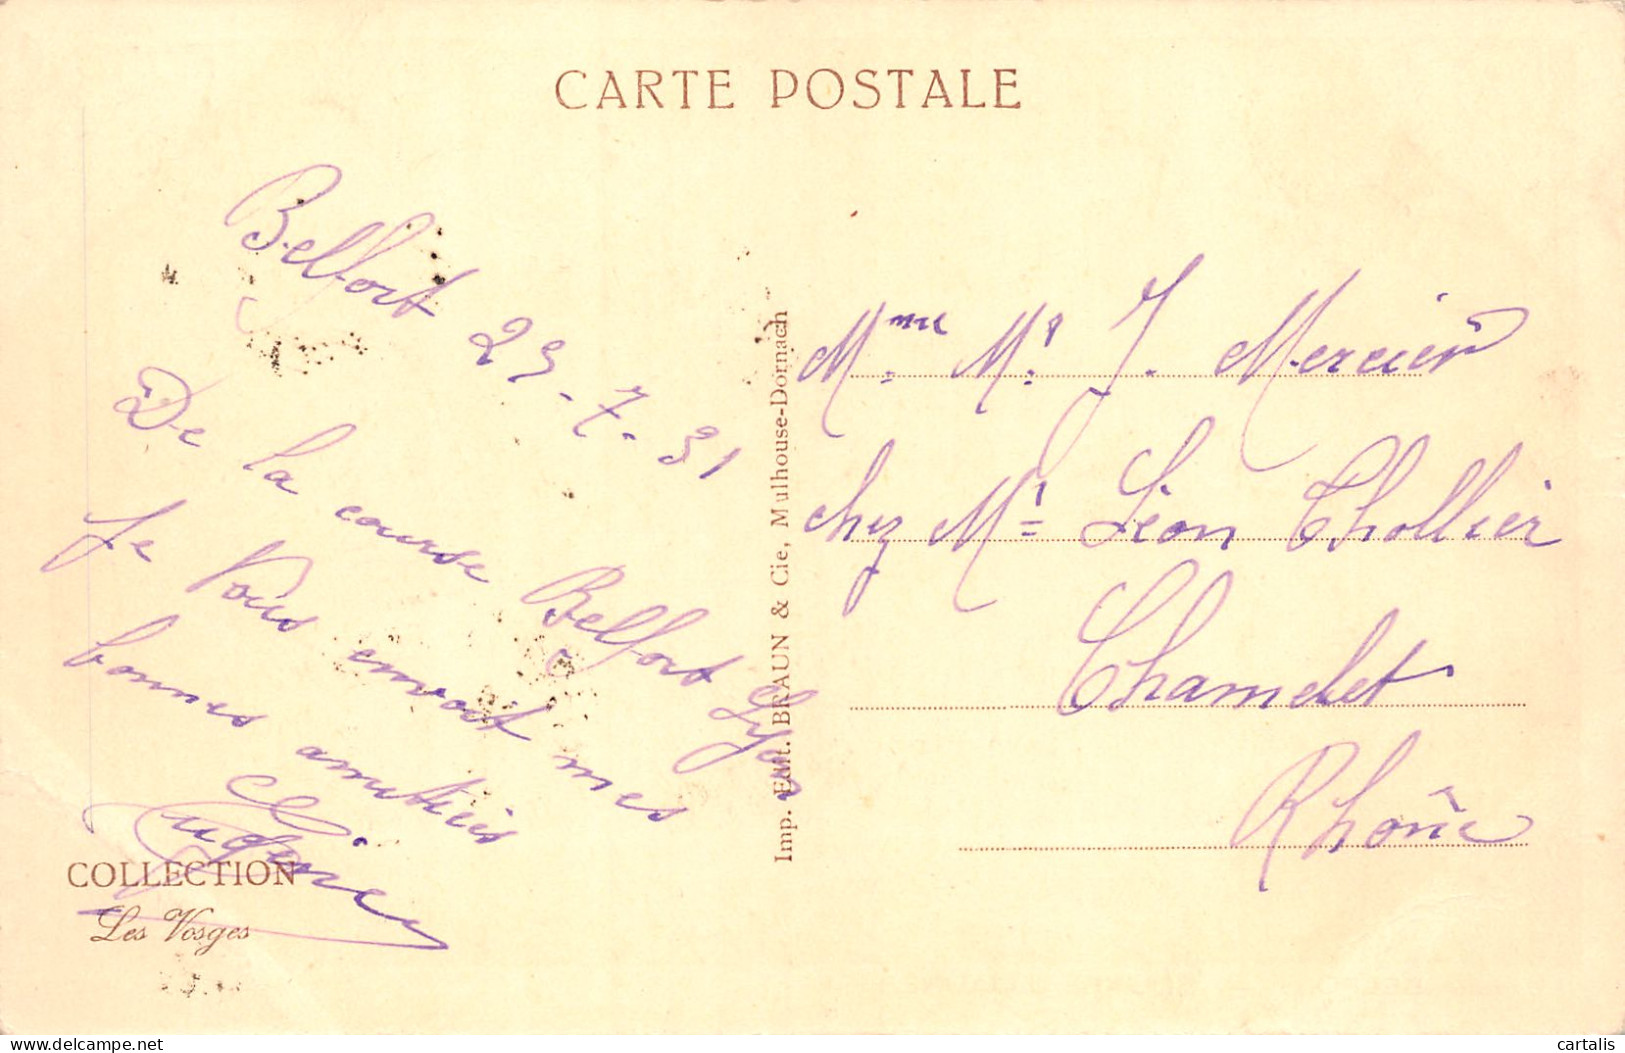 CARTE POSTALE
Belfort 29-7-31
De la course Belfort Lyon
Je Vous envoit mes
bonnes amitiés
COLLECTION
Les Vosges
Imp. Edit. BRAUN & Cie, Mulhouse-Dornach
Mme. Mr. J. Mercier
chez Mr Léon Chollier
Chamelet
Rhône
cartalis